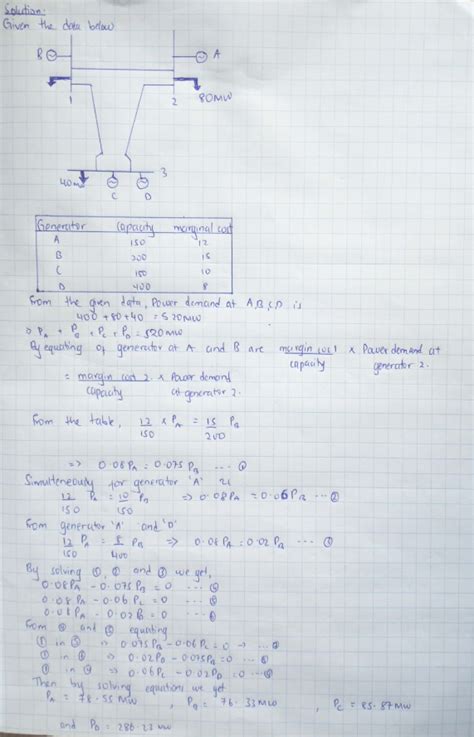 Solution:
Given the data below
B A
1 2 80MW
3
40MW
C D
Generator capacity marginal cost
A 150 12
B 200 15
C 150 10
D 400 8
From the given data, Power demand at A,B & D is
400 + 80 + 40 = 520MW
⇒ PA + PB + PC + PD = 520MW
By equating of generator at A and B are margin cost 1 × Power demand at
capacity generator 2.
= margin cost 2 × Power demand
capacity at generator 2.
From the table, 12/150 × PA = 15/200 PB
=> 0.08PA = 0.075PB ... ①
Simultaneously for generator 'A'
12/150 PA = 10/150 PB => 0.08PA = 0.06PB ... ②
From generator 'A' and 'D'
12/150 PA = 8/400 PB => 0.08PA = 0.02PB ... ③
By solving ①, ② and ③ we get,
0.08PA - 0.075PB = 0 ...
0.08PA - 0.06PC = 0 ...
0.08PA - 0.02B = 0 ...
From and equating
in => 0.075PB - 0.06PC = 0
in => 0.02PD - 0.075PB = 0 ...
in => 0.06PC - 0.02PD = 0 ...
Then by solving equations we get
PA = 78.55 MW , PB = 76.33MW , PC = 85.87MW
and PD = 286.23 MW